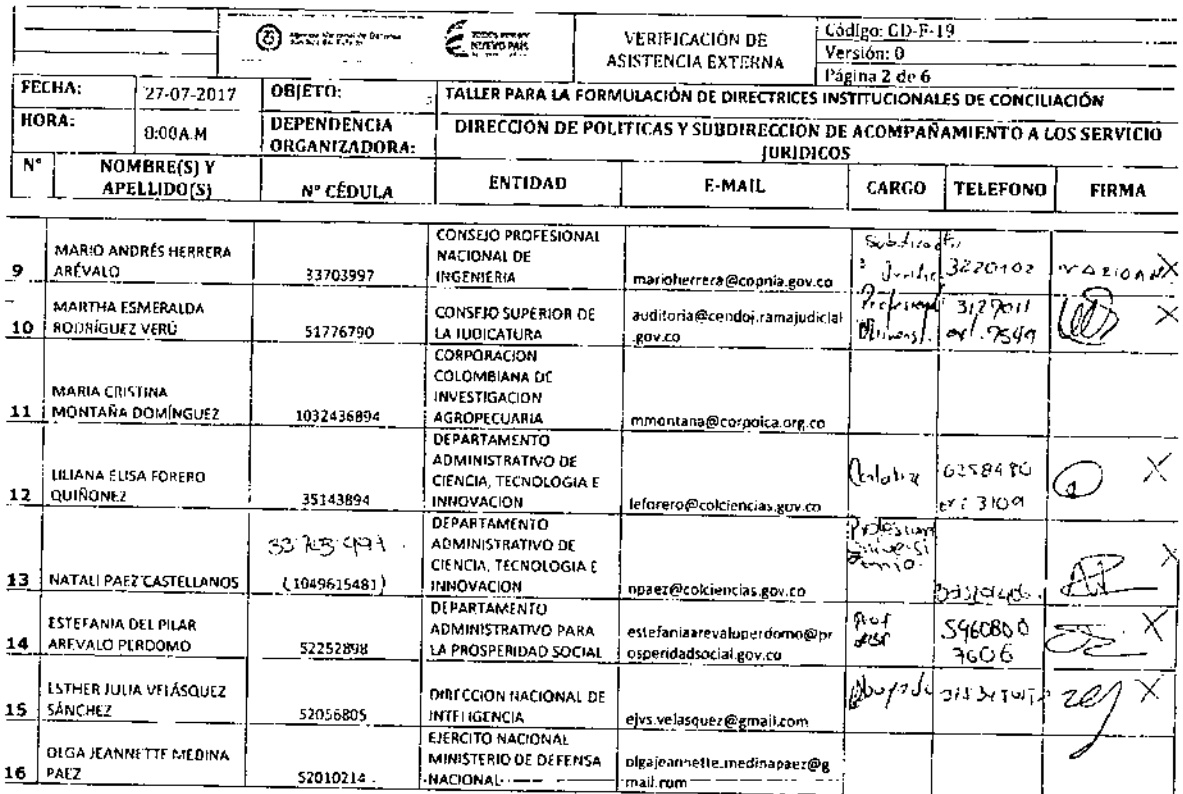 Agencia Nacional de Defensa
TODOS POR UN
NUEVO PAÍS
VERIFICACIÓN DE
ASISTENCIA EXTERNA
Código: GD-F-19
Versión: 0
Página 2 de 6
FECHA: 27-07-2017 OBJETO: TALLER PARA LA FORMULACIÓN DE DIRECTRICES INSTITUCIONALES DE CONCILIACIÓN
HORA: 8:00A.M DEPENDENCIA ORGANIZADORA: DIRECCIÓN DE POLITICAS Y SUBDIRECCIÓN DE ACOMPAÑAMIENTO A LOS SERVICIO
JURIDICOS
N° NOMBRE(S) Y APELLIDO(S) N° CÉDULA ENTIDAD E-MAIL CARGO TELEFONO FIRMA
9 MARIO ANDRÉS HERRERA
ARÉVALO
33703997
CONSEJO PROFESIONAL
NACIONAL DE
INGENIERIA
marioherrera@copnia.gov.co
3220102
X
10 MARTHA ESMERALDA
RODRÍGUEZ VERÚ
51776790
CONSEJO SUPERIOR DE
LA JUDICATURA
auditoria@cendoj.ramajudicial
.gov.co
Profesional
3127011
ext. 7549
X
11 MARIA CRISTINA
MONTAÑA DOMÍNGUEZ
1032436894
CORPORACION
COLOMBIANA DE
INVESTIGACION
AGROPECUARIA
mmontana@corpoica.org.co
12 LILIANA ELISA FORERO
QUIÑONEZ
35143894
DEPARTAMENTO
ADMINISTRATIVO DE
CIENCIA, TECNOLOGIA E
INNOVACION
leforero@colciencias.gov.co
6258480
ext 3109
X
13 NATALI PAEZ CASTELLANOS
33.703.997.
(1049615481)
DEPARTAMENTO
ADMINISTRATIVO DE
CIENCIA, TECNOLOGIA E
INNOVACION
npaez@colciencias.gov.co
X
14 ESTEFANIA DEL PILAR
AREVALO PERDOMO
52252898
DEPARTAMENTO
ADMINISTRATIVO PARA
LA PROSPERIDAD SOCIAL
estefaniaarevaloperdomo@pr
osperidadsocial.gov.co
Prof
5960800
7606
X
15 ESTHER JULIA VELÁSQUEZ
SÁNCHEZ
52056805
DIRECCION NACIONAL DE
INTELIGENCIA
ejvs.velasquez@gmail.com
Abogado
X
16 OLGA JEANNETTE MEDINA
PAEZ
52010214
EJERCITO NACIONAL
MINISTERIO DE DEFENSA
NACIONAL
olgajeannette.medinapaez@g
mail.com